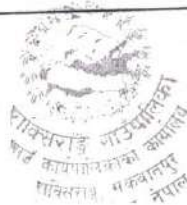 राक्सिराङ गाउँपालिका
कार्यपालिकाको कार्यालय
राक्सिराङ मकवानपुर
नेपाल